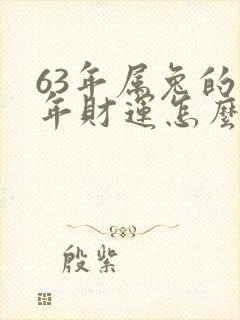 63年属兔的
年财运怎麽
殷紫